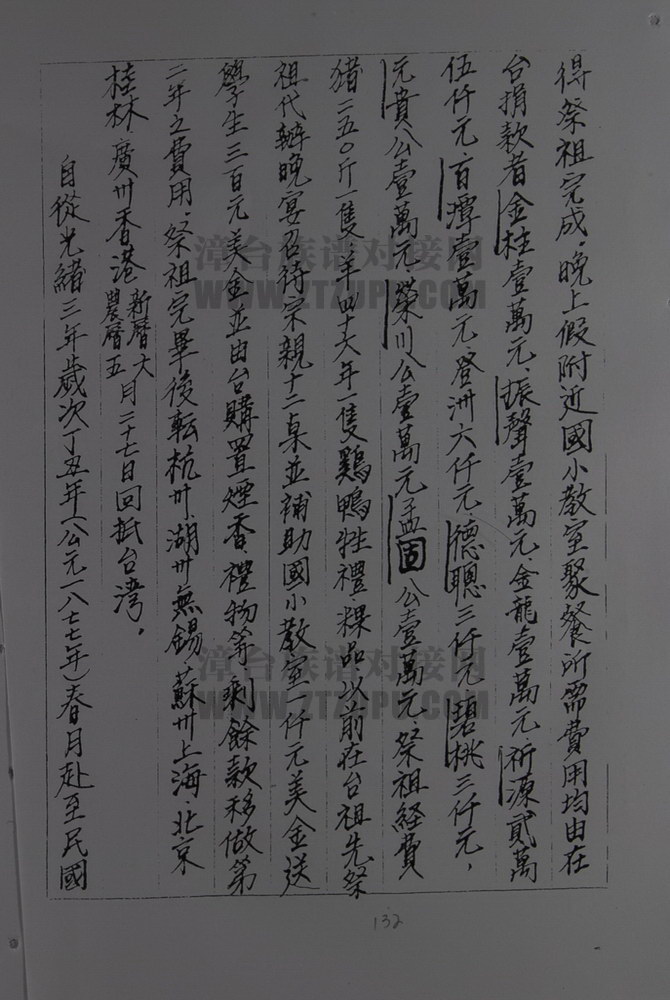 得祭祖完成。晚上假附近國小教室聚餐所需費用均由在
台捐款者金柱壹萬元、振聲壹萬元金龍壹萬元祈源貳萬
伍仟元、百潭壹萬元、登洲六仟元、德聰三仟元、碧桃三仟元，
元貴公壹萬元榮川公壹萬元孟固公壹萬元、祭祖経費
猪二五0斤一隻、羊四十六年一隻鷄鴨牲禮、粿品以前在台祖先祭
祖代辦晚宴召待宗親十二桌並補助國小教室一仟元美金送
學生三百元美金並由台購置煙香、禮物等、剩餘款移做第
二年之費用。祭祖完畢後転杭州、湖州無錫、蘇州上海、北京
桂林、廣州香港新曆六農曆五月二十七日回抵台湾，
自從光緒三年歲次丁丑年（公元一八七七年）春月赴至民國
132
漳台族谱对接网
WWW.ZTZUPU.COM
漳台族谱对接网
WWW.ZTZUPU.COM